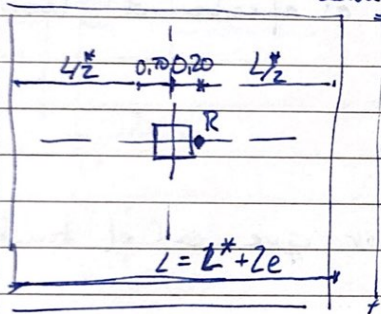 L*/2 0,70 0,20 L*/2
R
L = L* + 2e